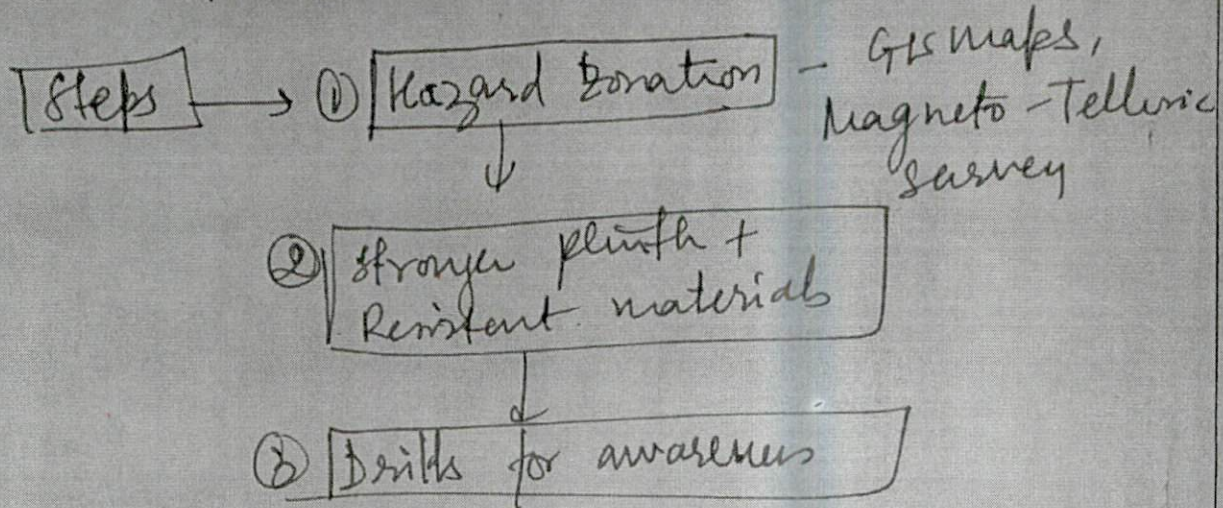 Steps → ① Hazard Zonation - GIS maps,
Magneto-Telluric
survey
② stronger plinth +
Resistant materials
③ Drills for awareness